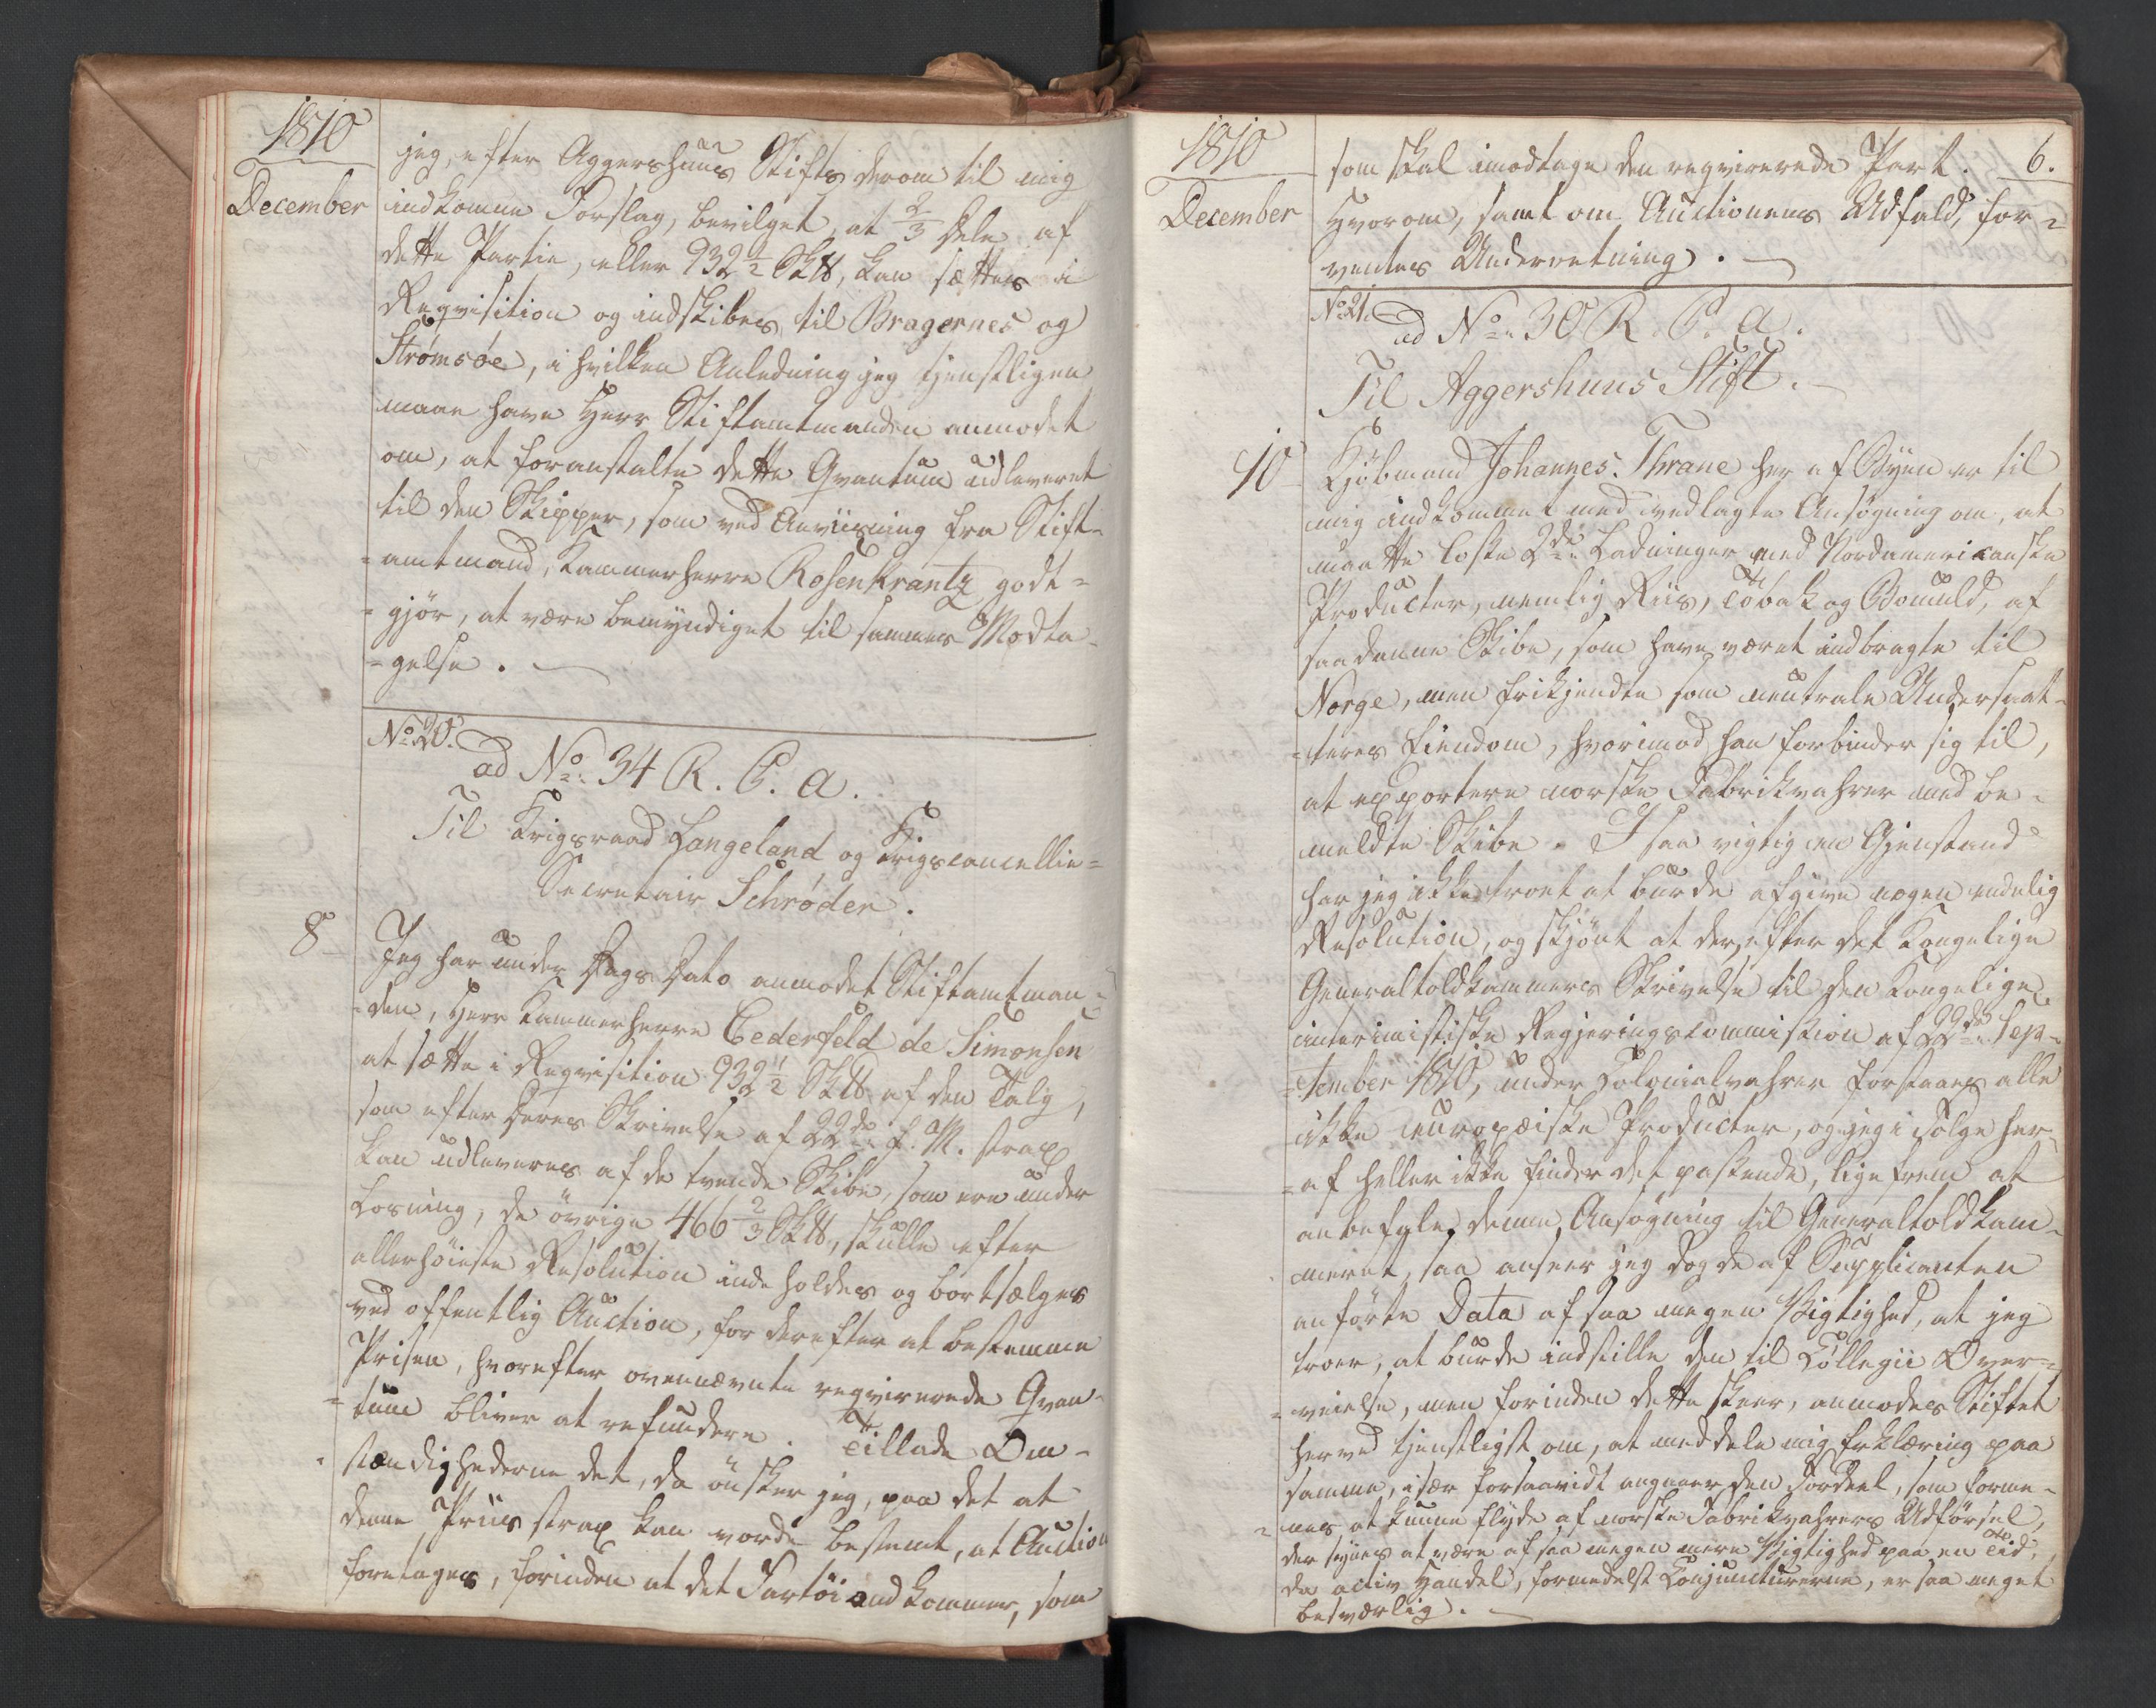 1810
December
jeg, efter Aggershuus Stifts derom til mig
indkomne Forslag, bevilget, at 2/3 Dele af
dette Partie, eller 932 1/2 Sk℔, kan sættes i
Reqvisition og indskibes til Bragernes og
Strømsøe, i hvilken Anledning jeg tjenstligen
maae have Herr Stiftamtmanden anmodet
om, at foranstalte dette Qvantum udleveret
til den Skipper, som ved Anviisning fra Stift-
=amtmand, Kammerherre Rosenkrantz godt=
=gjør, at være bemyndiget til sammes Modta-
=gelse.
No 20.
ad No: 34 R. C. a.
Til Krigsraad Langeland og Krigscancellie=
Secretair Schrøder.
8
Jeg har under Dags Dato anmodet Stiftamtman-
=den, Herr Kammerherre Cederfeld de Simonsen
at sætte i Reqvisition 932 1/2 Sk℔ af den Talg,
som efter Deres Skrivelse af 22de f. M. strax
kan udleveres af de tvende Skibe, som ere under
Losning; de övrige 466 2/3 Sk℔, skulle efter
allerhöieste Resolution indeholdes og bortsælges
ved offentlig Auction, for derefter at bestemme
Prisen, hvorefter ovennævnte reqvirerede Qvan-
=tum bliver at refundere. Tillade Om-
stændighederne det, da önsker jeg, paa det at
denne Priis strax kan vorde bestemt, at Auction
foretages, forinden at det Fartöi indkommer, som
1810
December
6.
som skal imodtage den reqvirerede Part.
Hvorom, samt om Auctionens Udfald, for=
ventes Underretning.
No 21.
ad No: 30 R. C. a.
Til Aggershuus Stift.
10
Kjöbmand Johannes Thrane her af Byen er til
mig indkommet med vedlagte Ansögning om, at
maatte losse 2de Ladninger med Nordamericanske
Producter, nemlig Riis, Tobak og Bomuld, af
saadanne Skibe, som have været indbragte til
Norge, men frikjendte som neutrale Undersaat-
=teres Eiendom, hvorimod han forbinder sig til,
at exportere norske Fabrikvahrer med be-
meldte Skibe. I saa vigtig en Gjenstand
har jeg ikke troet at burde afgive nogen endelig
Resolution, og skjönt at der, efter det Kongelige
Generaltoldkammers Skrivelse til den Kongelige
interimistiske Regjeringscommission af 22de Sep-
=tember 1810, under Colonialvahrer forstaaes alle
ikke europæiske Producter, og jeg i Fölge her-
=af heller ikke finder det passende, ligefrem at
anbefale denne Ansögning til Generaltoldkam-
meret, saa anseer jeg dog de af Supplicanten
anförte Data af saa megen Vigtighed, at jeg
troer, at burde indstille den til Collegii Over=
=veielse, men forinden dette skeer, anmodes Stiftet
herved tjenstligst om, at meddele mig Erklæring paa
samme, især forsaavidt angaaer den Fordeel, som forme-
=nes at kunne flyde af norske Fabrikvahrers Udförsel,
der synes at være af saa megen mere Vigtighed paa en Tid,
da activ Handel, formedelst Conjuncturerne, er saa meget
besværlig.